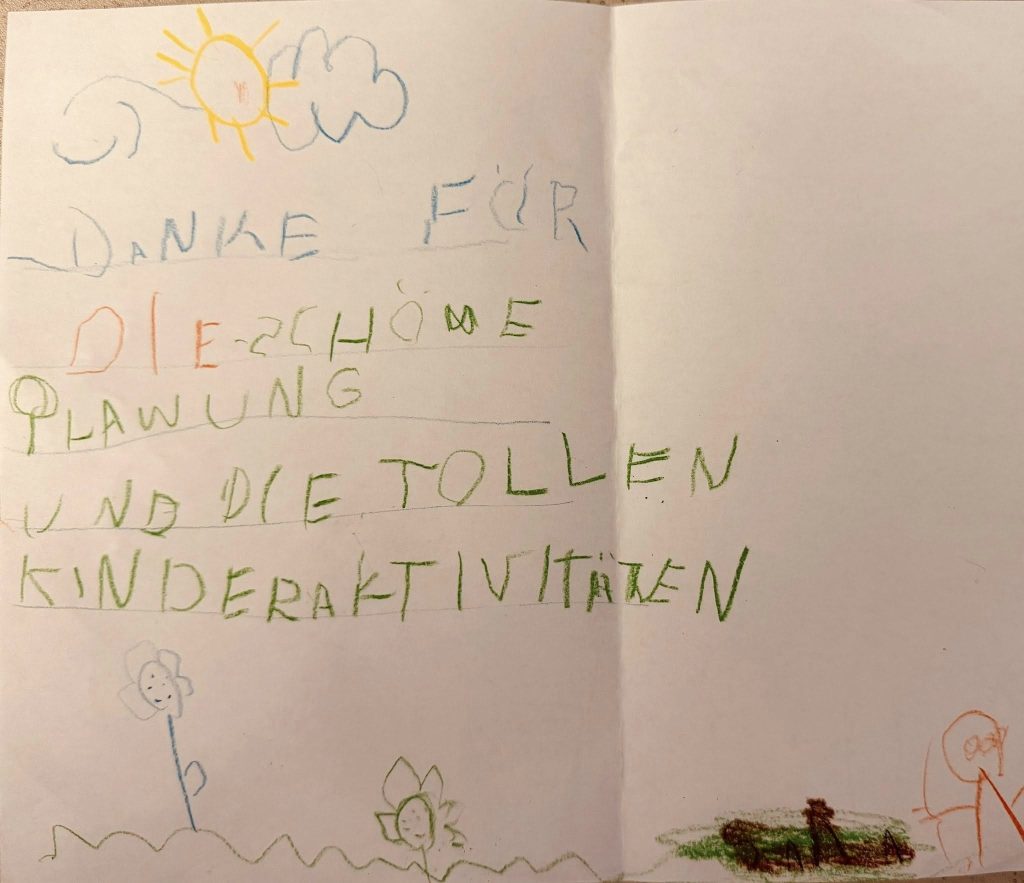 DANKE FÜR
DIE SCHÖNE
PLAWUNG
UND DIE TOLLEN
KINDERAKTIVITÄTEN